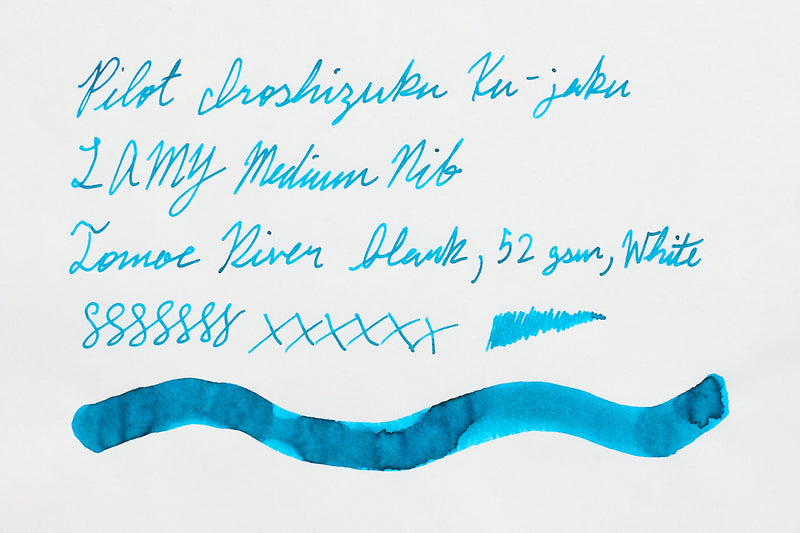 Pilot Iroshizuku Ku-jaku
LAMY Medium Nib
Tomoe River blank, 52 gsm, White
SSSSSSSS XXXXXXX